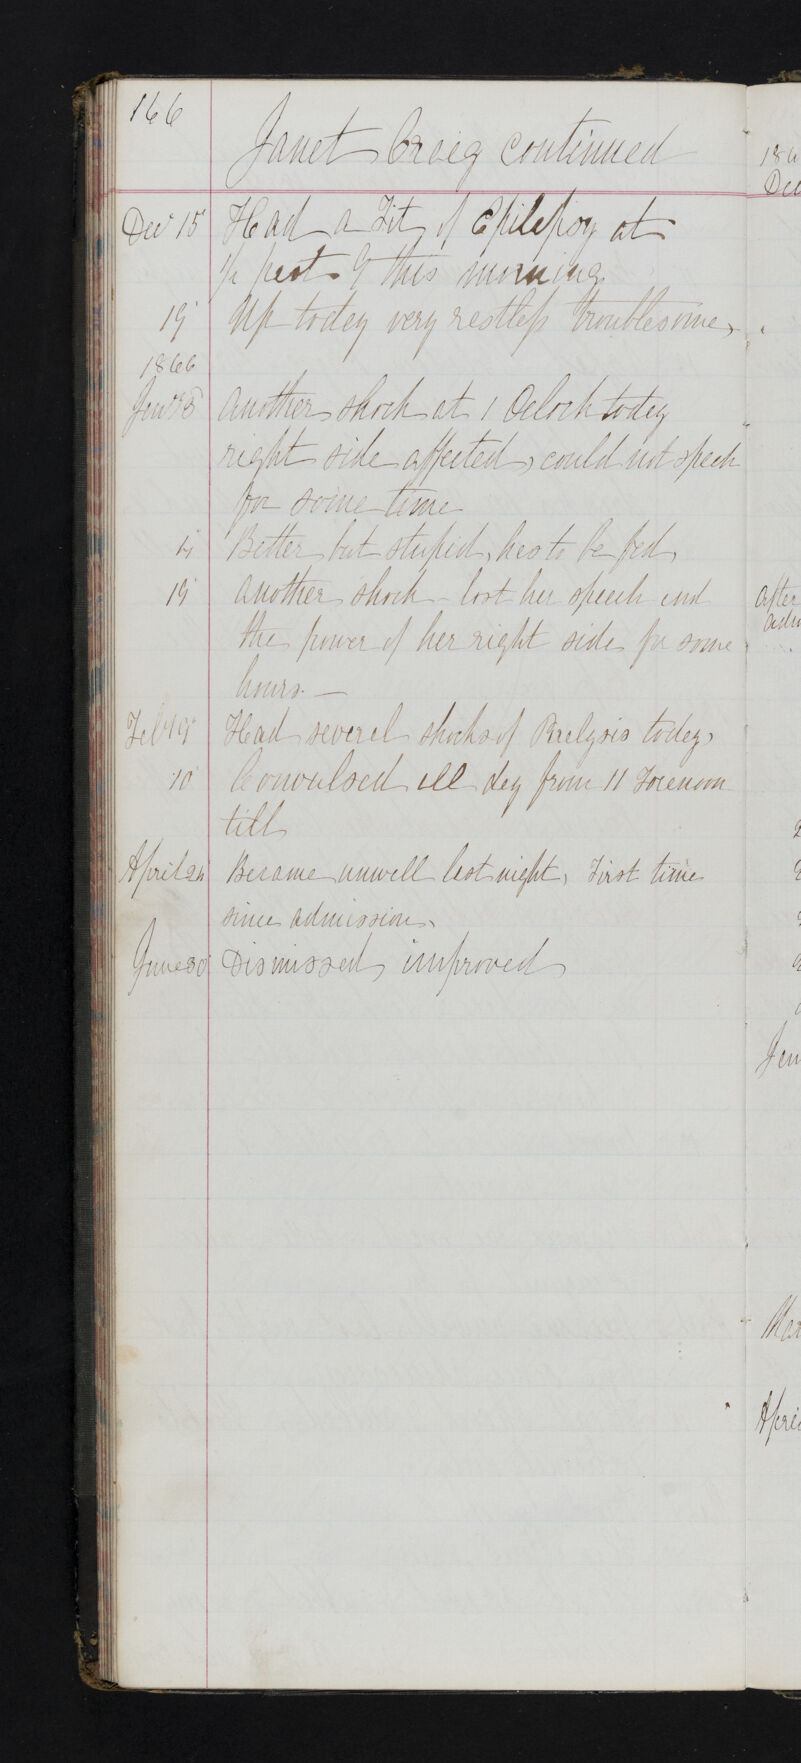 166
Janet Craig continued
Decr 15 Had a Fit of Epilepsy at
½ past 9 this morning
19 Up today very restless troublesome,
1866
Another shock at 1 Oclock today
right side affected, could not speak
for some time
Better but stupid, has to be fed,
19 Another shock - lost her speech and
the power of her right side for some
hours. —
Feby 9 Had several shocks of Paralysis today,
10 Convulsed all day from 11 Forenoon
till
April 24 Became unwell last night, First time
since admission,
June 30 Dismissed, improved
186
Dec
after
adm
Jan
Mar
April